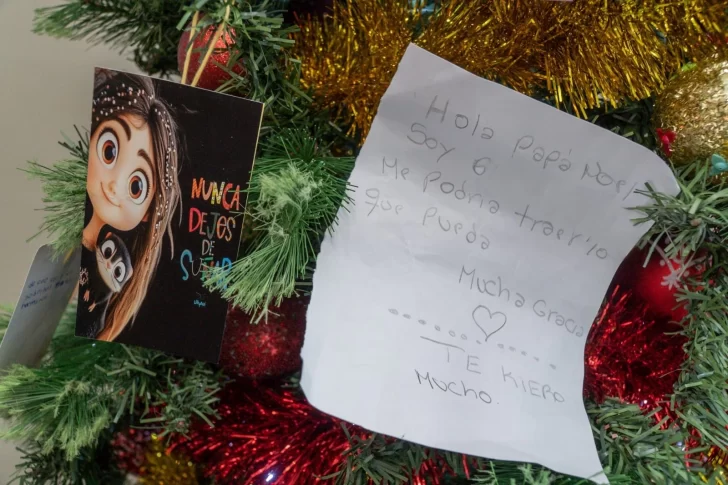 NUNCA
DEJES
DE
SOÑAR
Hola Papá Noel
Soy G
Me Podria traer lo
que Pueda
Mucha Gracia
TE KIERO
MUCHO.